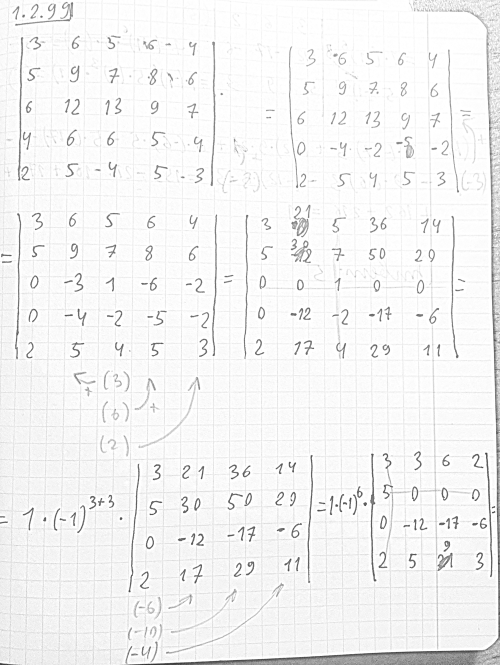 1.2.99
| 3 6 5 6 4 | | 3 6 5 6 4 |
| 5 9 7 8 6 | | 5 9 7 8 6 |
| 6 12 13 9 7 | = | 6 12 13 9 7 | =
| 4 6 6 5 4 | | 0 -4 -2 -5 -2 |
| 2 5 4 5 3 | | 2 5 4 5 3 | (-3)
| 3 6 5 6 4 | | 3 21 5 36 14 |
| 5 9 7 8 6 | | 5 7 50 29 |
= | 0 -3 1 -6 -2 | = | 0 0 1 0 0 | =
| 0 -4 -2 -5 -2 | | 0 -12 -2 -17 -6 |
| 2 5 4 5 3 | | 2 17 4 29 11 |
+ (3)
(6) +
(2)
| 3 21 36 14 | | 3 3 6 2 |
= 1·(-1)³⁺³· | 5 30 50 29 | = 1·(-1)⁶· | 5 0 0 0 | =
| 0 -12 -17 -6 | | 0 -12 -17 -6 |
| 2 17 29 11 | | 2 5 9 3 |
(-6)
(-10)
(-4)